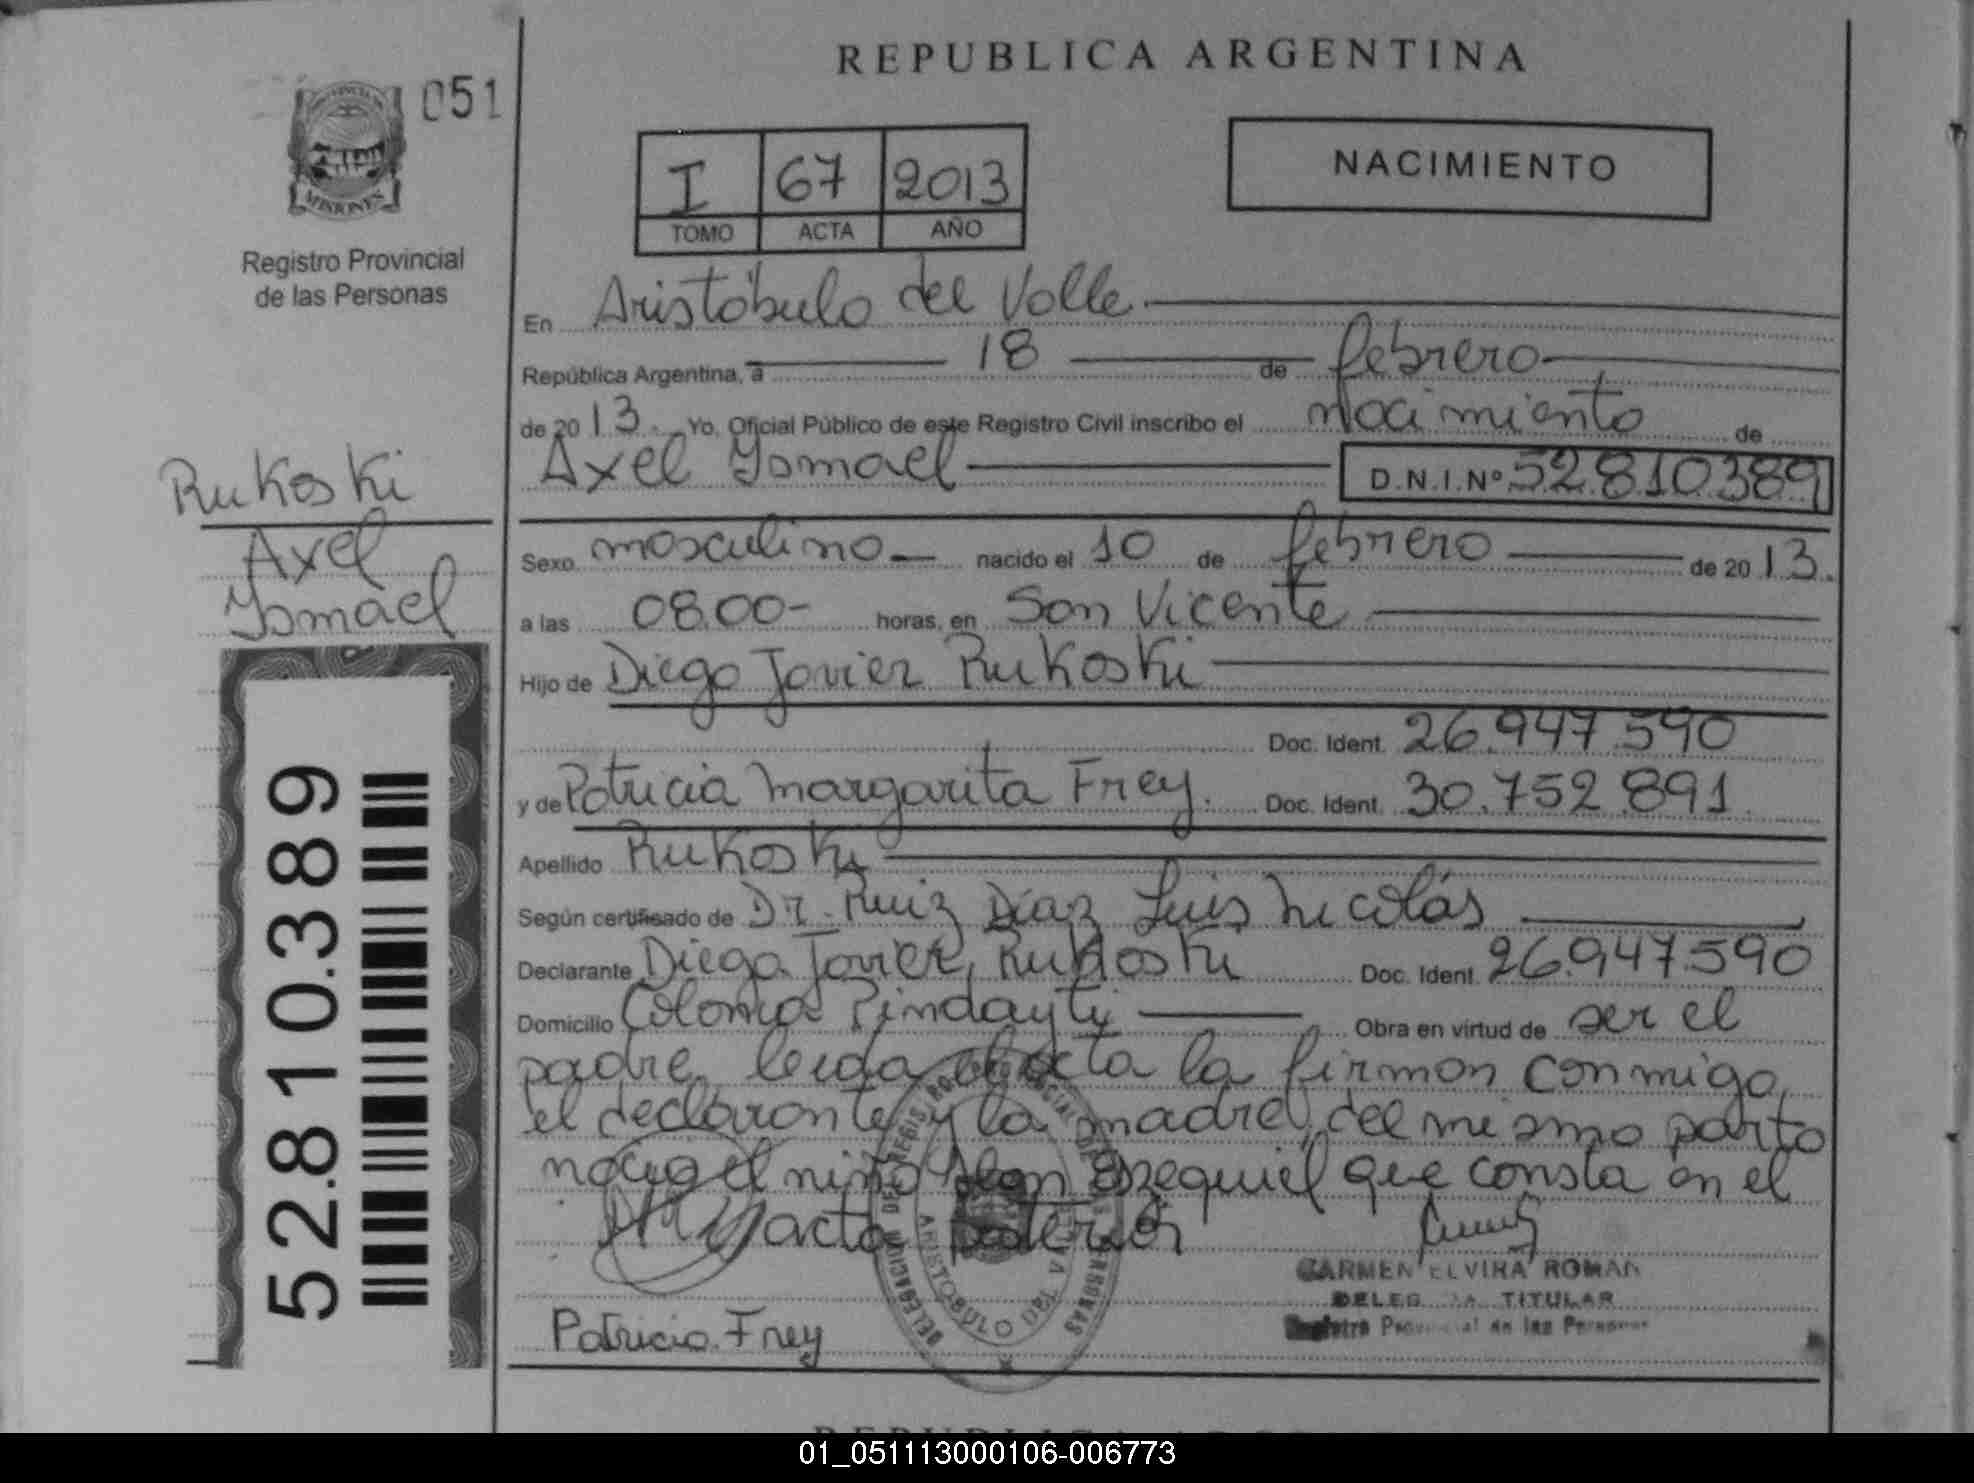 REPUBLICA ARGENTINA
051
PROVINCIA DE
MISIONES
Registro Provincial
de las Personas
I 67 2013
TOMO ACTA AÑO
NACIMIENTO
En Aristóbulo del Valle
República Argentina, a 18 de febrero
de 2013. Yo, Oficial Público de este Registro Civil inscribo el nacimiento de
Axel Ysmael D.N.I.Nº 52810389
Rukoski
Axel
Ysmael
Sexo masculino nacido el 10 de febrero de 2013.
a las 08.00- horas, en San Vicente
Hijo de Diego Javier Rukoski
Doc. Ident. 26.947.590
y de Patricia Margarita Frey. Doc. Ident. 30.752.891
Apellido Rukoski
Según certificado de Dr. Ruiz Díaz Luis Nicolás
Declarante Diego Javier Rukoski Doc. Ident. 26.947.590
Domicilio Colonia Pindayti Obra en virtud de ser el
padre, leída el acta la firman conmigo,
el declarante y la madre, del mismo parto
nacio el niño Alan Ezequiel que consta en el
acta
Patricia Frey
CARMEN ELVIRA ROMAN
DELEGADA TITULAR
Registro Provincial de las Personas
52.810.389
01_051113000106-006773